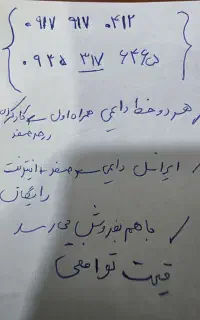 ۰۹۱۷ ۹۱۷ ۰۴۱۲
۰۹۳۵ ۳۱۷ ۶۴۶۵
هر دو خط دایمی همراه اول کارکرده
در حد صفر
ایرانسل دایمی صفر + اینترنت
رایگان
با هم بفروش میرسد
قیمت توافقی